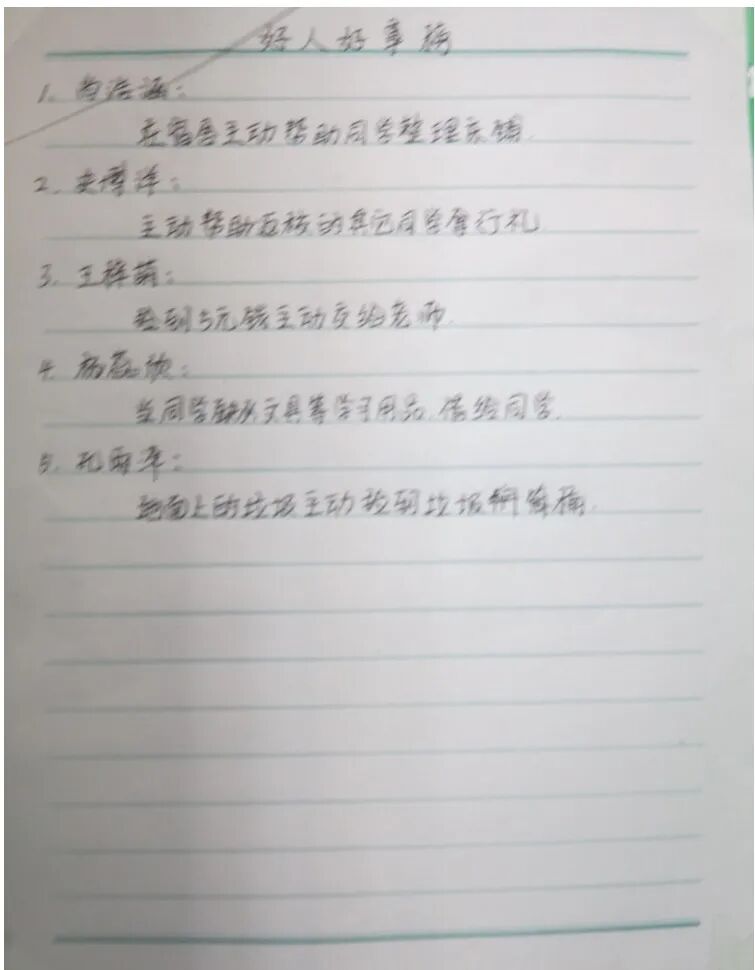 好人好事
1.
在宿舍主动帮助同学整理床铺.
2.
主动帮助返校的其它同学拿行礼
3. 王梓萌:
捡到5元钱主动交给老师.
4.
当同学缺少文具等学习用品,借给同学.
5. 孔雨泽:
地面上的垃圾主动捡到垃圾桶.